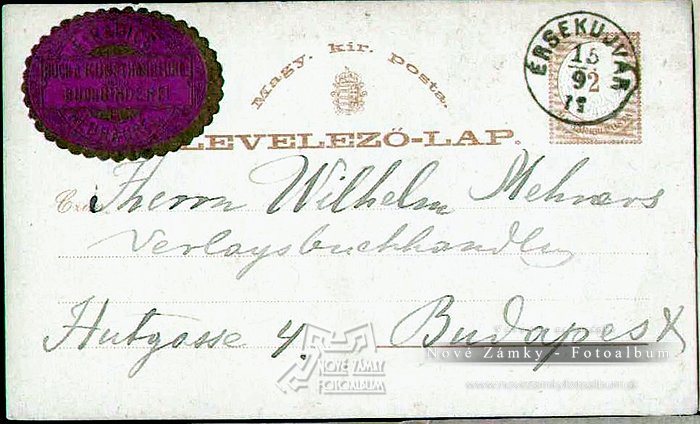 BUCH & KUNSTHANDLUNG
BUCHBINDEREI
Magy. kir. posta.
LEVELEZŐ-LAP.
ÉRSEKUJVÁR
15
9
2
Herrn Wilhelm
Verlagsbuchhandler
Hutgasse 4. Budapest
NOVÉ ZÁMKY
FOTOALBUM
Nové Zámky - Fotoalbum
www.novezamkyfotoalbum.sk